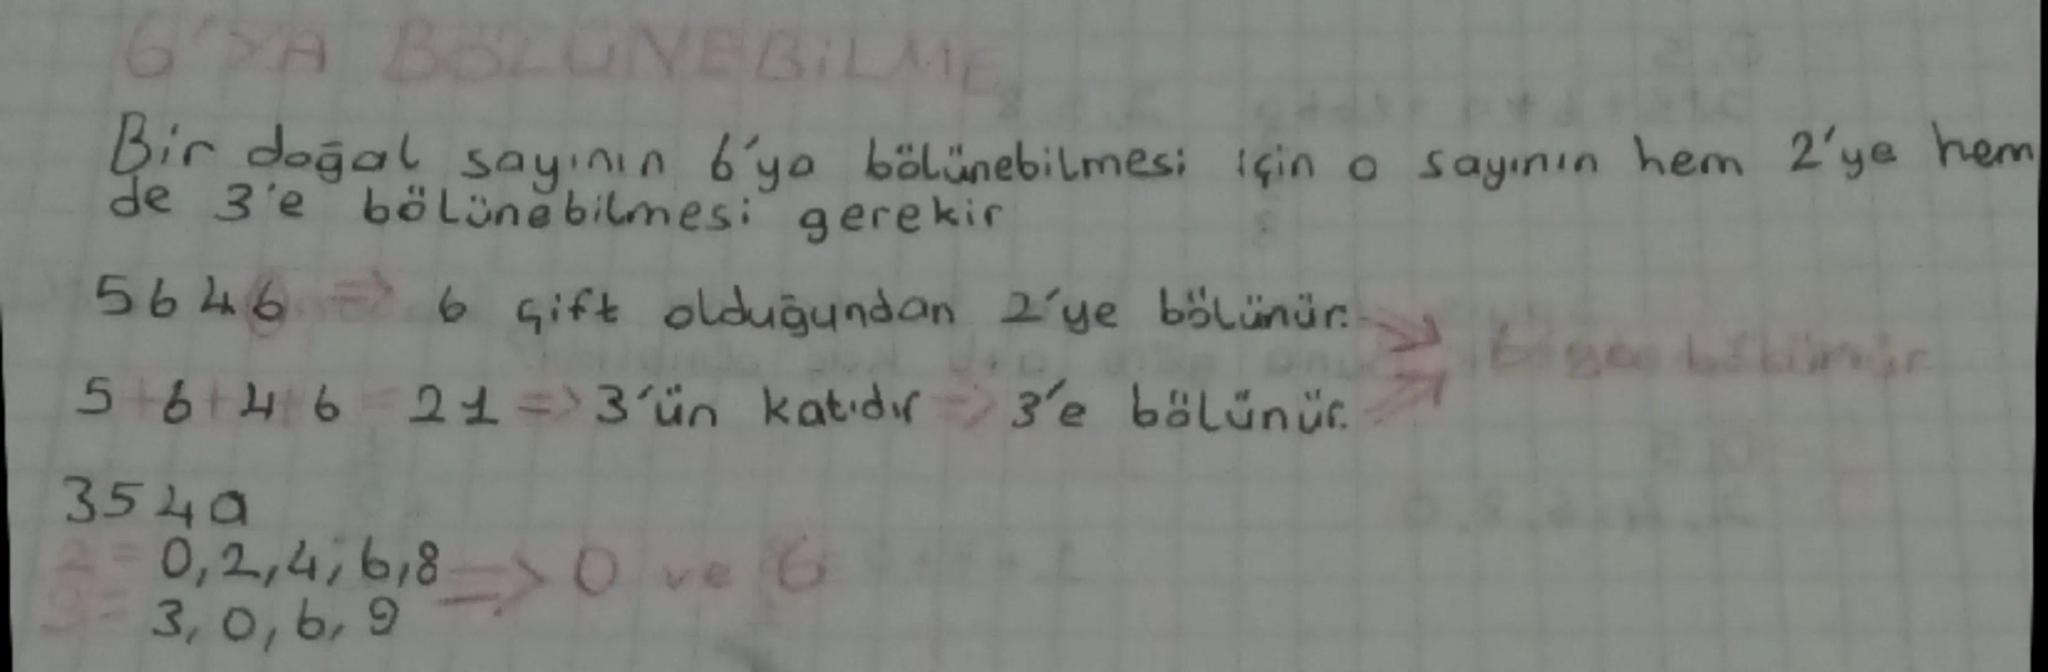 6'YA BÖLÜNEBİLME
Bir doğal sayının 6'ya bölünebilmesi için o sayının hem 2'ye hem
de 3'e bölünebilmesi gerekir
5646 => 6 çift olduğundan 2'ye bölünür. =>
5+6+4+6=21 => 3'ün katıdır => 3'e bölünür. => bölünür
354a
2= 0,2,4,6,8 => 0 ve 6
3= 3,0,6,9